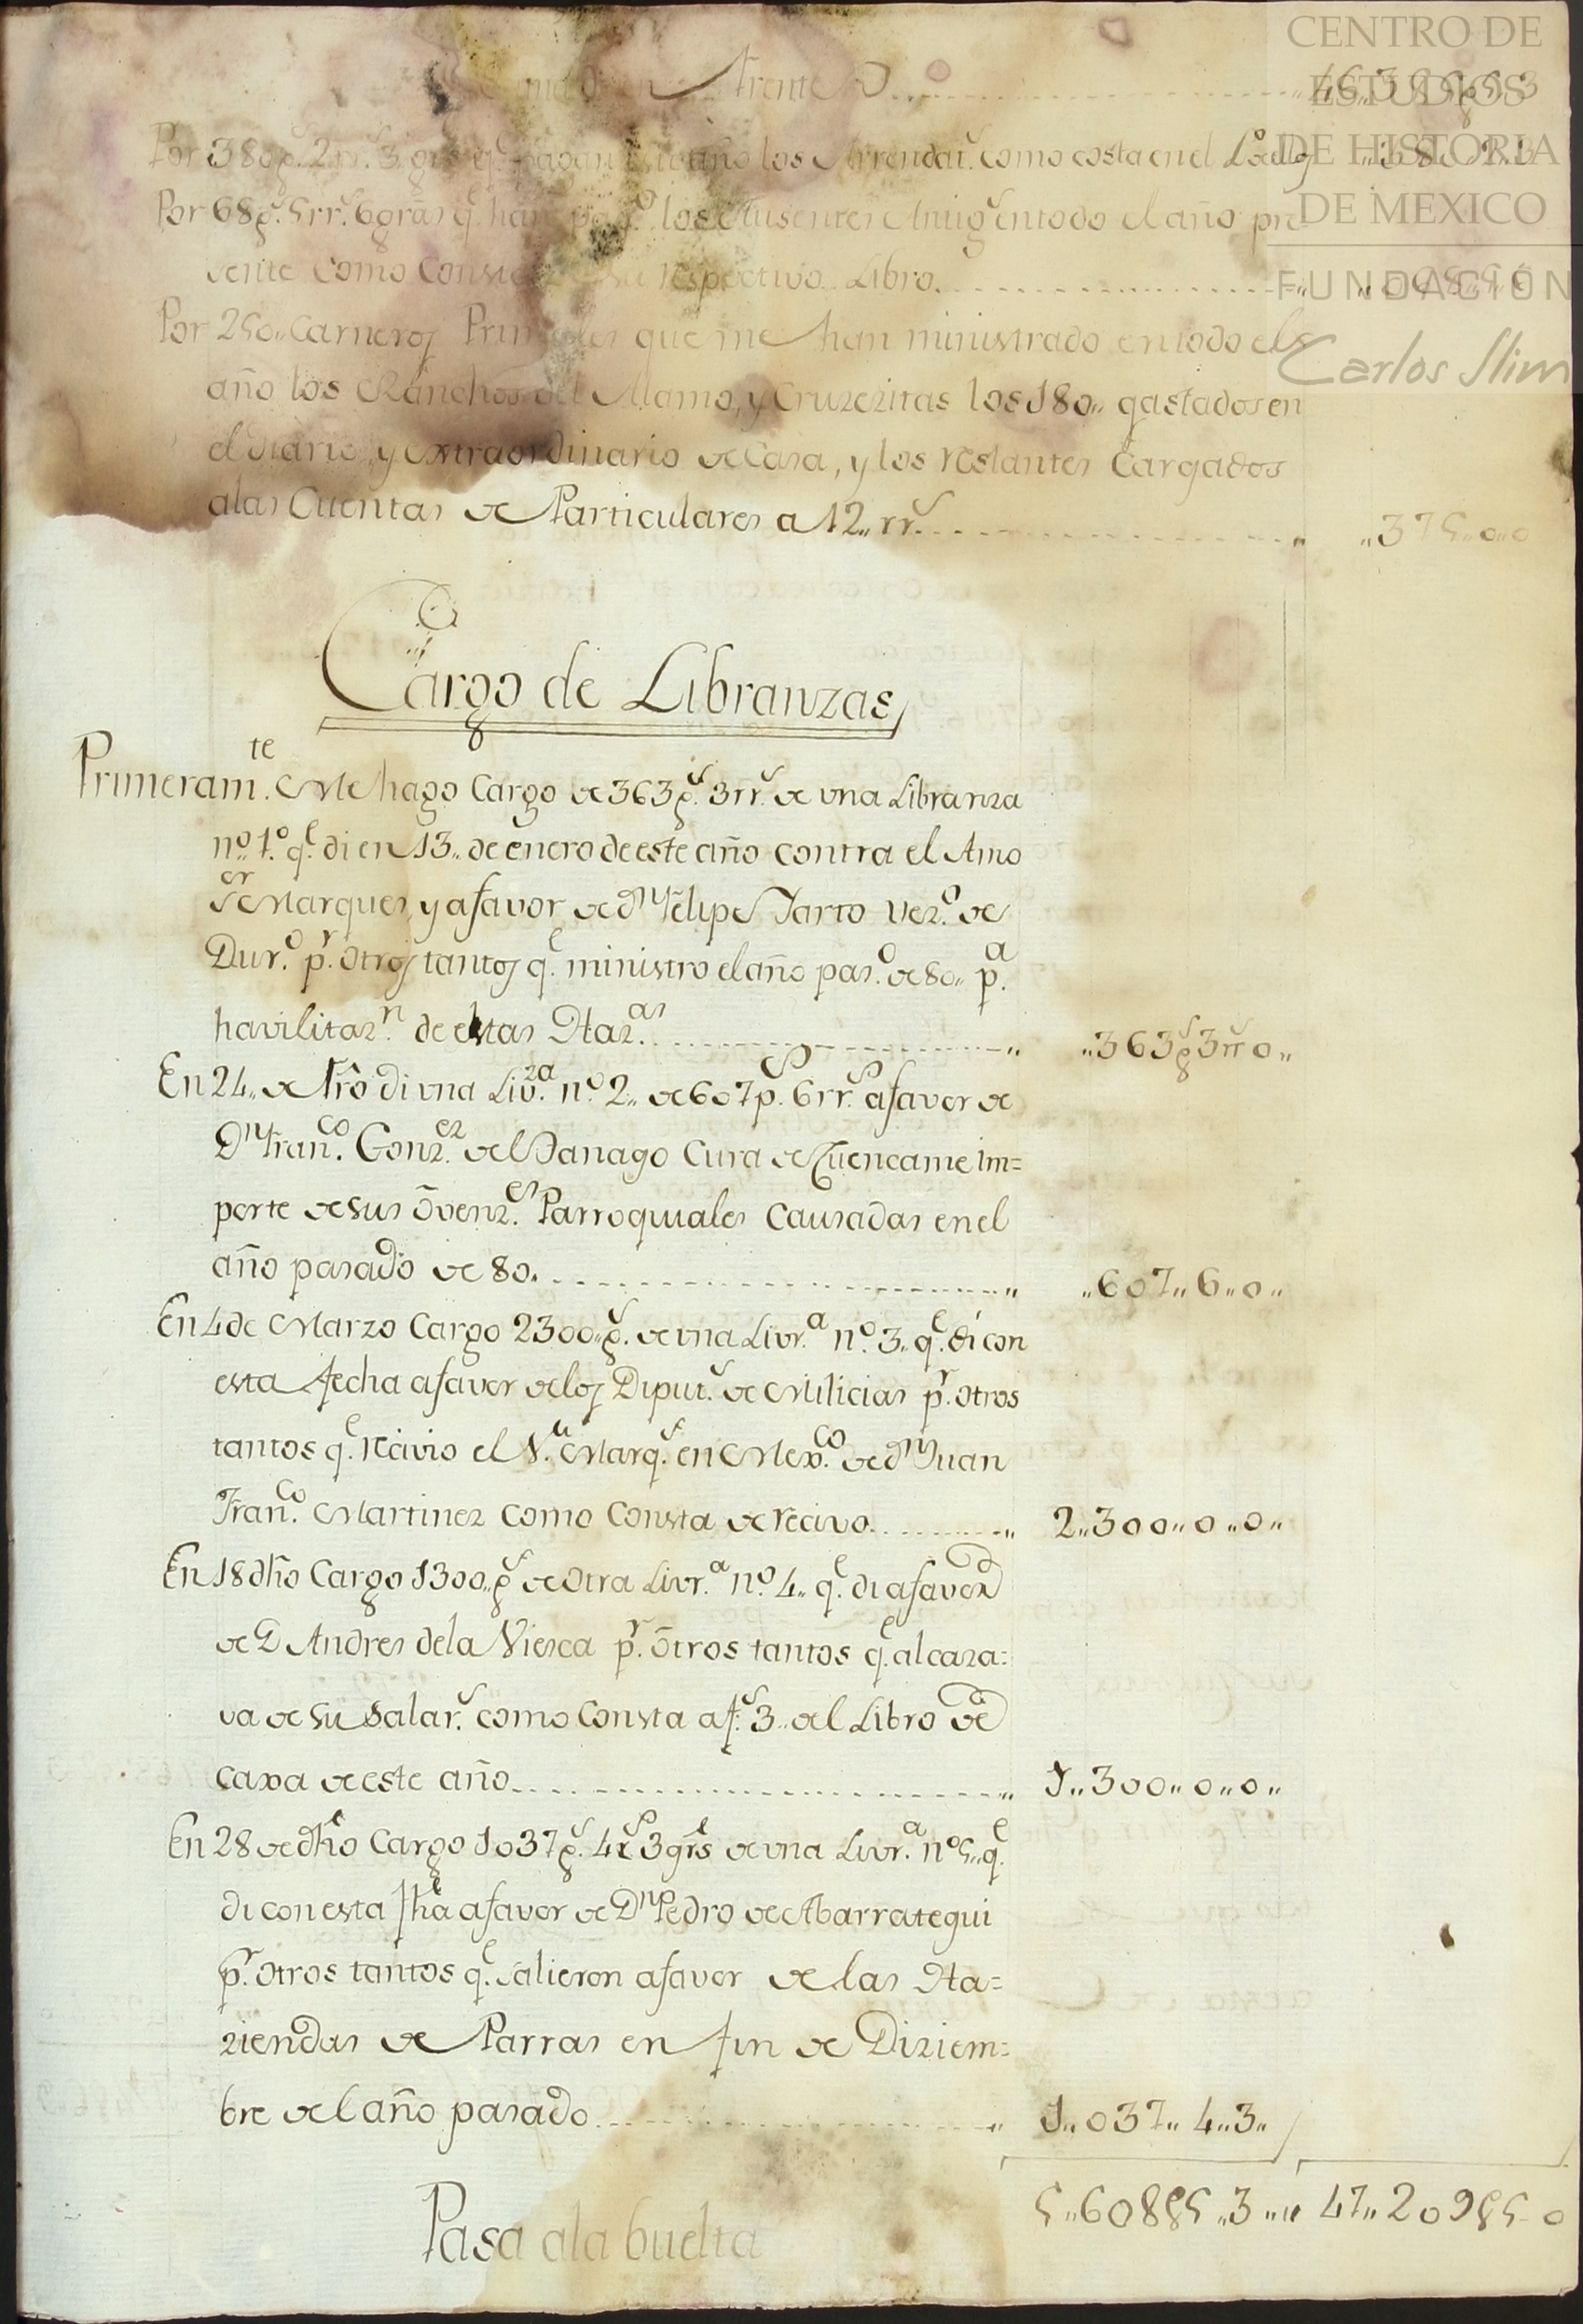 frente
CENTRO DE
ESTUDIOS
DE HISTORIA
DE MEXICO
FUNDACIÓN
Carlos Slim
Por 380p.s 2rr.s 3 gr.s q.e pagan los Arrendat.s como costa en el L.o de ellos
Por 68p.s 5rr.s 6 gran.s q.e han los Ausentes Antig.s en todo el año pre-
sente como Consta su respectivo Libro.
Por 250,, Carneros Primales que me han ministrado en todo el
año los Ranchos del Alamo, y Cruzezitas los 180,, gastados en
el diario, y extraordinario de Casa, y los restantes Cargados
a las Cuentas de Particulares a 12,, rr.s ,,375,,0,,0
Cargo de Libranzas
Primeram.te Me hago Cargo de 363p.s 3rr.s de una Libranza
n.o 1.o q.e di en 13,, de enero de este año contra el Amo
S.or Marques, y a favor de D.n Felipe Yarto vez.o de
Dur.o p.r otros tantos q.e ministro el año pas.o de 80,, p.a
havilitaz.n de estas Haz.as ,,363p.s 3rr.s 0,,
En 24,, de Fro di una Liv.za n.o 2,, de 607p.s 6rr.s a favor de
D.n Fran.co Gonz.ez del Danago Cura de Cuencame im=
porte de sus ovenz.es Parroquiales Causadas en el
año pasado de 80. ,,607,,6,,0,,
En 4 de Marzo Cargo 2300,,p.s de una Livr.a n.o 3,, q.e di con
esta fecha a favor de los Diput.s de Milicias p.r otros
tantos q.e recivio el S.or Marq.s en Mex.co de D.n Juan
Fran.co Martinez como Consta de recivo. 2,,300,,0,,0,,
En 18 dho Cargo 1300,,p.s de otra Livr.a n.o 4,, q.e di a favor
de D Andres de la Viesca p.r otros tantos q.e alcaza=
va de su Salar.s como Consta a f.s 3,, del Libro de
caxa de este año 1,,300,,0,,0,,
En 28 de dho Cargo 1037p.s 4rr.s 3grs de una Livr.a n.o 5,, q.e
di con esta fha a favor de D.n Pedro de Abarrategui
p.r otros tantos q.e salieron a favor de las Ha=
ziendas de Parras en fin de Diziem=
bre del año pasado 1,,037,,4,,3,,
5,,608p.s 5,,3,,,, 47,,209p.s 5,,0
Pasa a la buelta